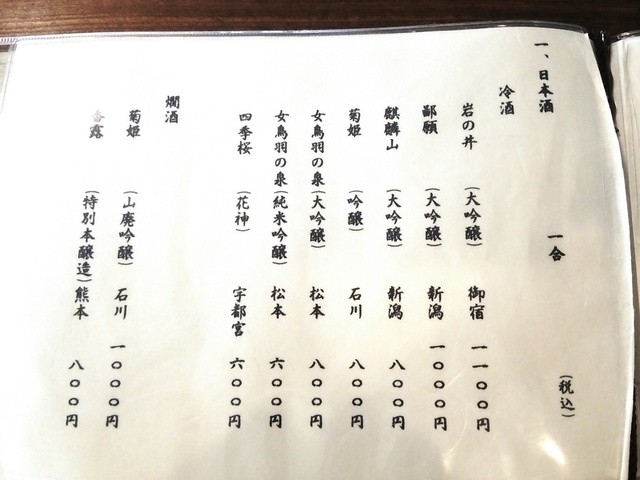 一、日本酒 一合 (税込)
冷酒
岩の井 (大吟醸) 御宿 一一〇〇円
鄙願 (大吟醸) 新潟 一〇〇〇円
麒麟山 (大吟醸) 新潟 八〇〇円
菊姫 (吟醸) 石川 八〇〇円
女鳥羽の泉 (大吟醸) 松本 八〇〇円
女鳥羽の泉 (純米吟醸) 松本 六〇〇円
四季桜 (花神) 宇都宮 六〇〇円
燗酒
菊姫 (山廃吟醸) 石川 一〇〇〇円
香露 (特別本醸造) 熊本 八〇〇円